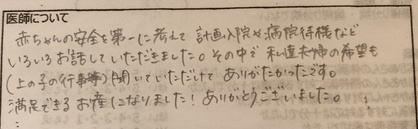 医師について
赤ちゃんの安全を第一に考えて 計画入院や病院待機など
いろいろお話していただきました。その中で私達夫婦の希望も
(上の子の行事等)聞いていただけて ありがたかったです。
満足できるお産になりました！ありがとうございました。